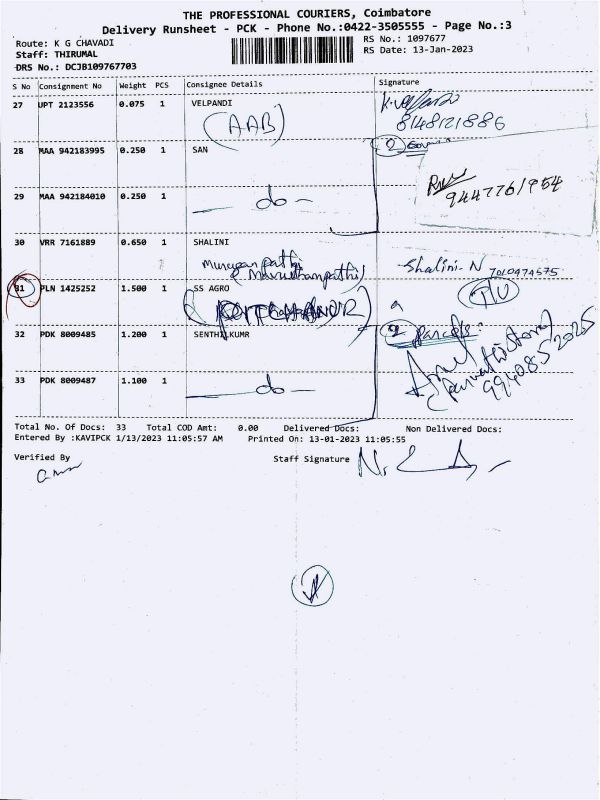 THE PROFESSIONAL COURIERS, Coimbatore
Delivery Runsheet - PCK - Phone No.:0422-3505555 - Page No.:3
Route: K G CHAVADI
RS No.: 1097677
Staff: THIRUMAL
RS Date: 13-Jan-2023
DRS No.: DCJB109767703
S No Consignment No Weight PCS Consignee Details Signature
27 UPT 2123556 0.075 1 VELPANDI
(AAB) 8148121886
28 MAA 942183995 0.250 1 SAN
29 MAA 942184010 0.250 1 — do —
9447761954
30 VRR 7161889 0.650 1 SHALINI
Shalini-N 7010974575
31 PLN 1425252 1.500 1 SS AGRO
32 PDK 8009485 1.200 1 SENTHILKUMR
2 Parcels:
9940852025
33 PDK 8009487 1.100 1 — do —
Total No. Of Docs: 33 Total COD Amt: 0.00 Delivered Docs: Non Delivered Docs:
Entered By :KAVIPCK 1/13/2023 11:05:57 AM Printed On: 13-01-2023 11:05:55
Verified By
Staff Signature